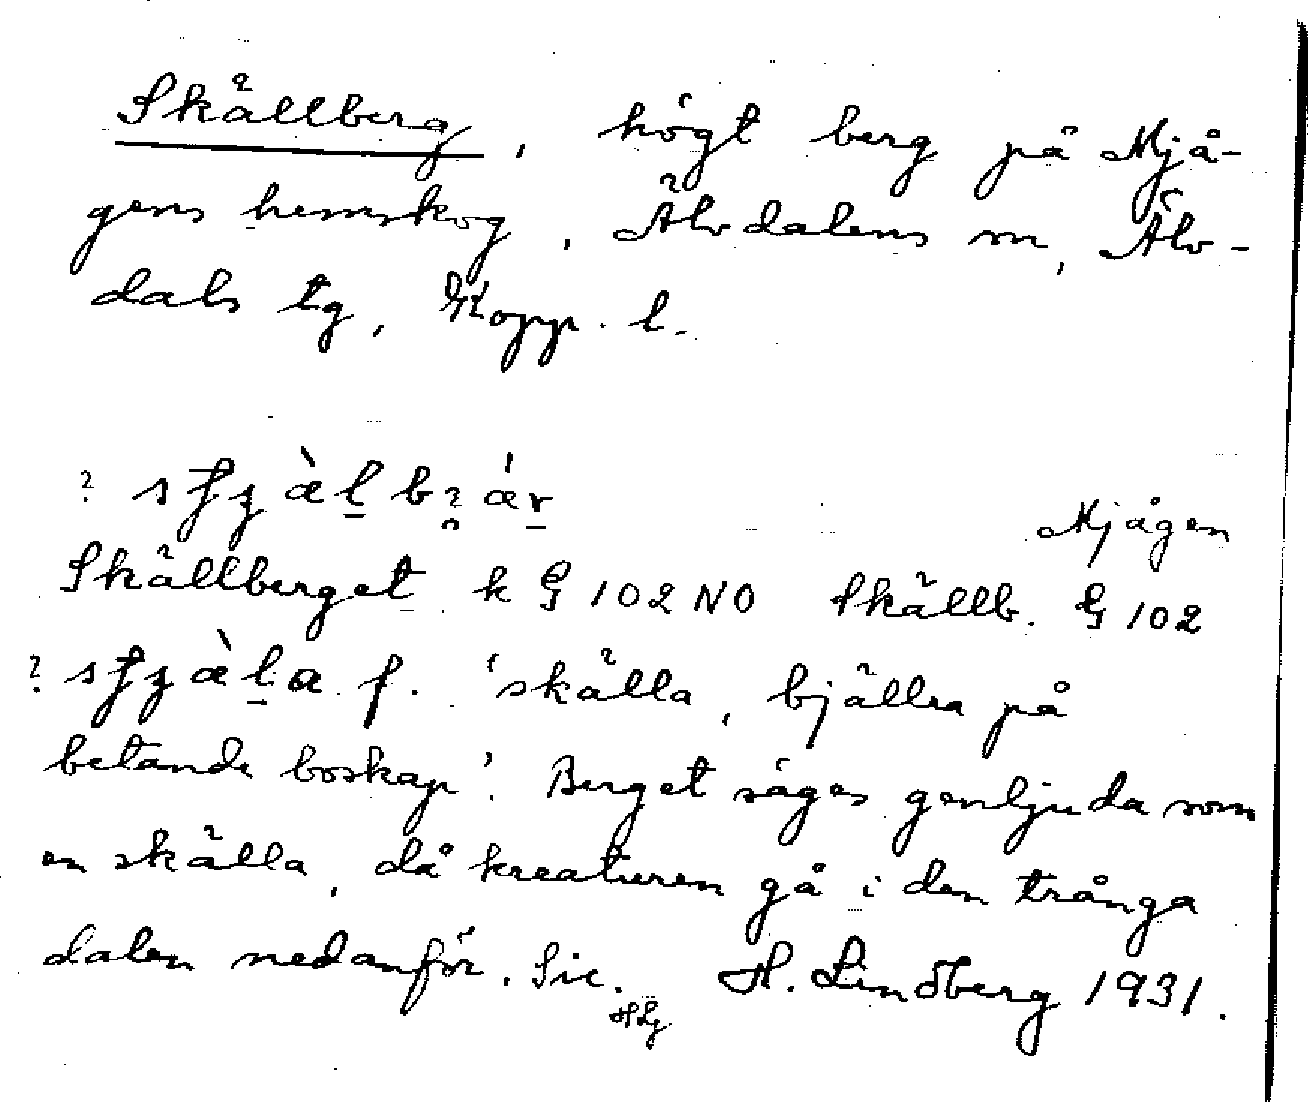 Skällberg, högt berg på Mjå-
gens hemskog, Älvdalens sn, Älv-
dals tg, Kopp. l.
Mjågen
Skällberget k G 102 NO Skällb. G 102
f. 'skälla, bjällra på
betande boskap'. Berget säges genljuda som
en skälla, då kreaturen gå i den trånga
dalen nedanför. Sic. H. Lindberg 1931.